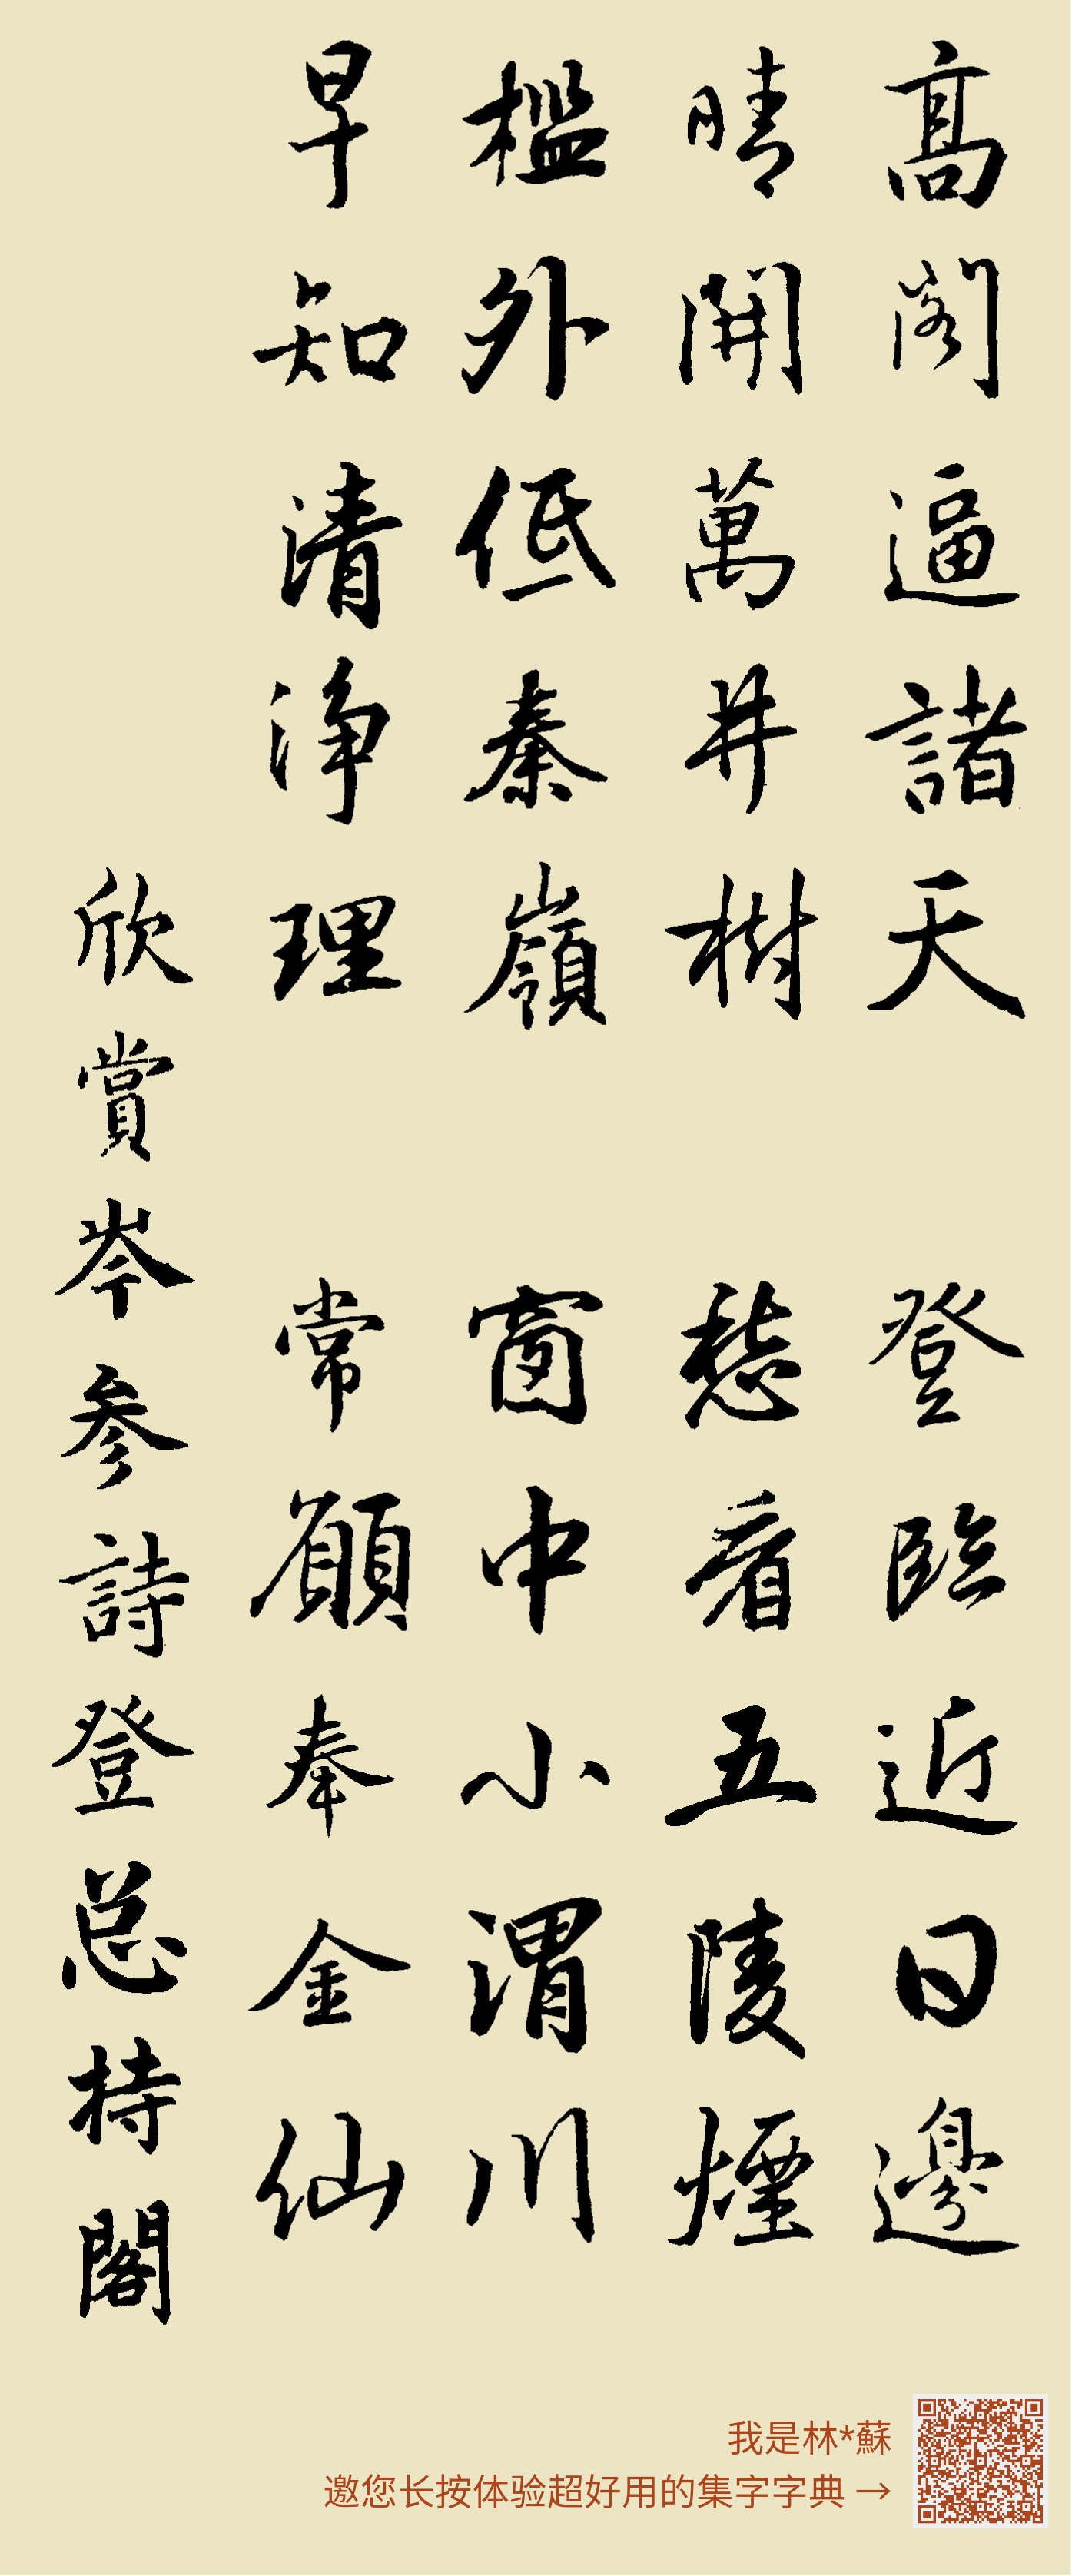 高閣逼諸天 登臨近日邊
晴開萬井樹 愁看五陵煙
檻外低秦嶺 窗中小渭川
早知清净理 常願奉金仙
欣賞岑参詩登总持閣
我是林*蘇
邀您长按体验超好用的集字字典 →